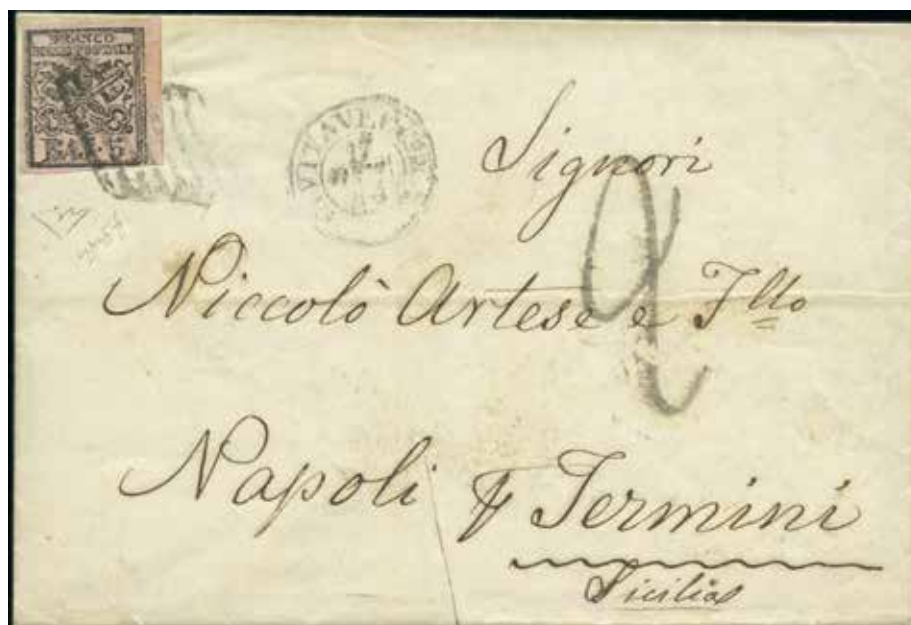 FRANCO
BOLLO POSTALE
BAJ. 5
CIVITAVECCHIA
17
Signori
2
Niccolò Artese e Fllo
Napoli p Termini
Sicilia